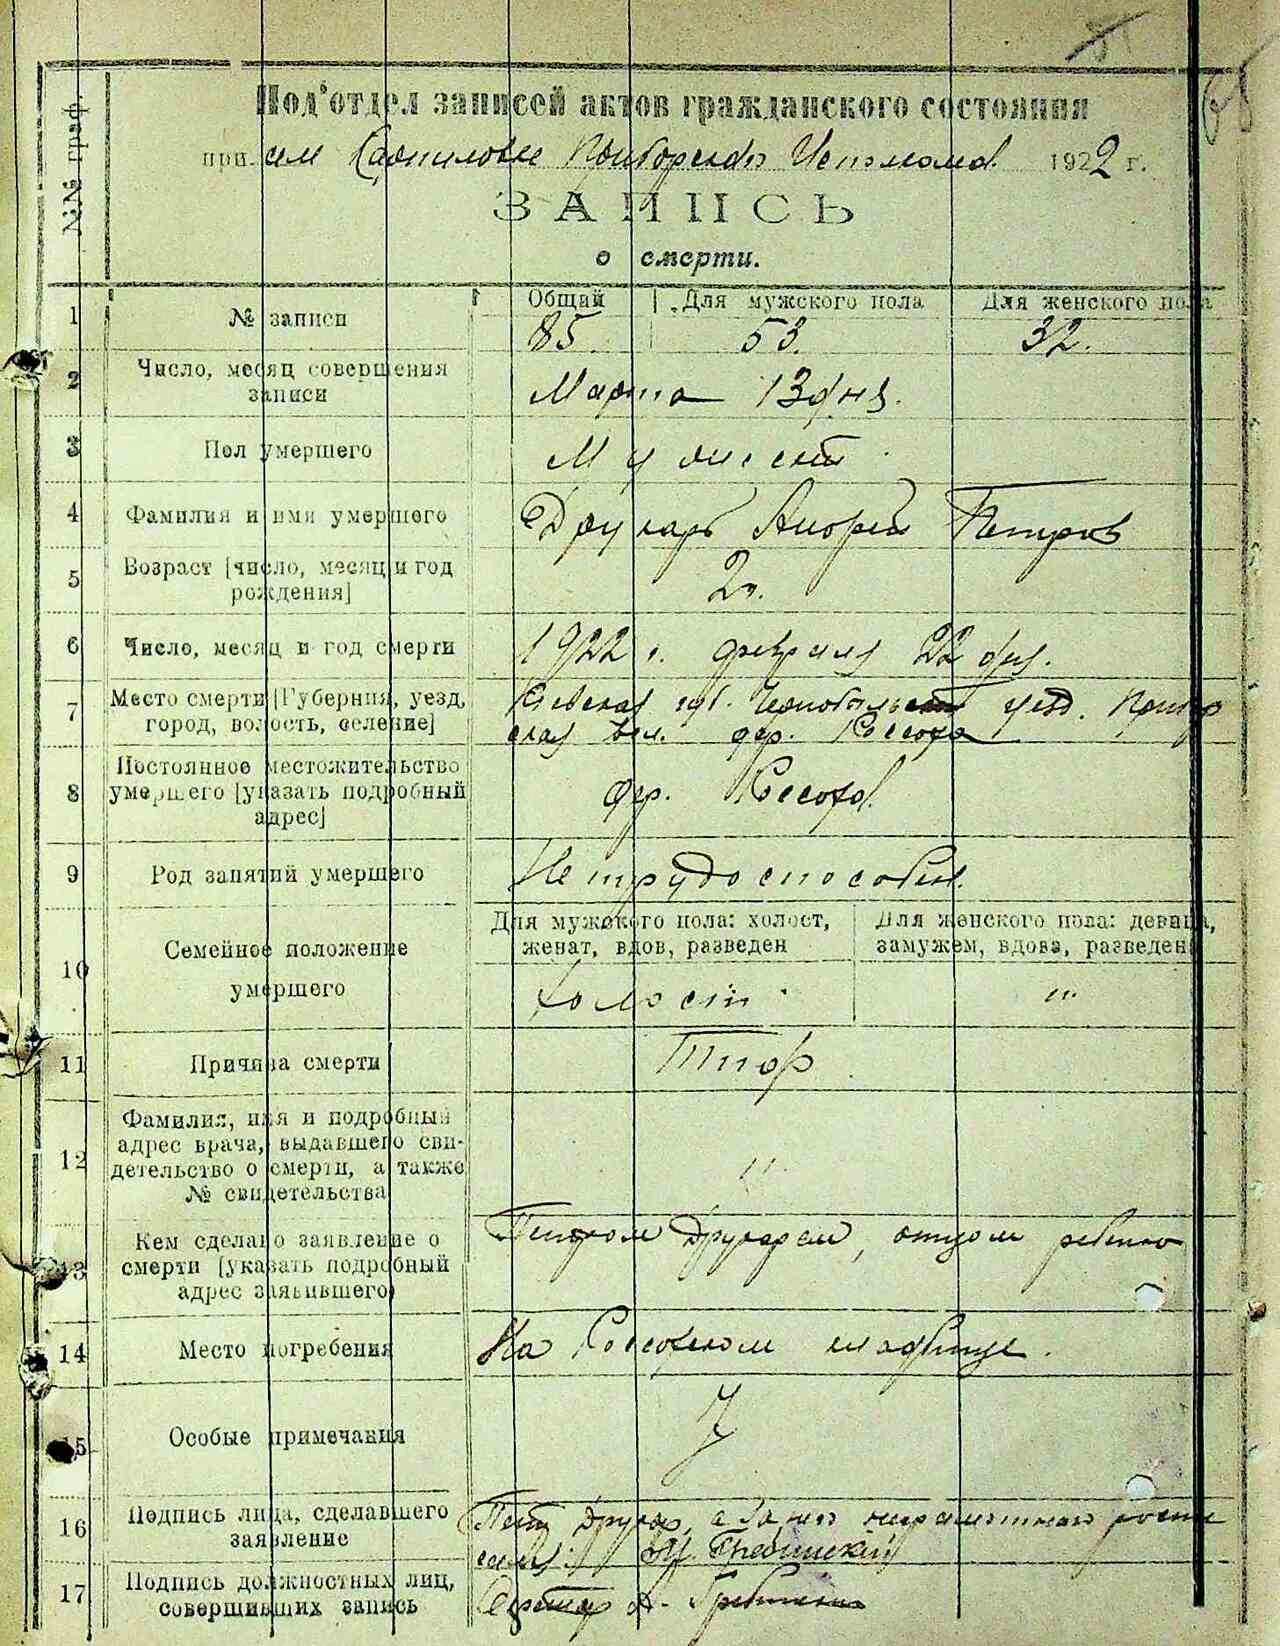 №№ граф.
Под'отдел записей актов гражданского состояния
при 1922 г.
ЗАПИСЬ
о смерти.
1 № записи Общий Для мужского пола Для женского пола
85. 53. 32.
2 Число, месяц совершения
записи
Марта 13 дня.
3 Пол умершего
Мужеск
4 Фамилия и имя умершего
Друкарь Андрей Петров
5 Возраст [число, месяц и год
рождения]
2 г.
6 Число, месяц и год смерти
1922 г. февраля 22 дня.
7 Место смерти [Губерния, уезд,
город, волость, селение]
Киевская губ. Чернобыльский уезд.
ская вол. дер. Россоха
8 Постоянное местожительство
умершего [указать подробный
адрес]
дер. Россоха.
9 Род занятий умершего
Нетрудоспособен.
10 Семейное положение
умершего
Для мужского пола: холост,
женат, вдов, разведен
Для женского пола: девица,
замужем, вдова, разведена
холост "
11 Причина смерти
Тиф
12 Фамилия, имя и подробный
адрес врача, выдавшего сви-
детельство о смерти, а также
№ свидетельства
"
13 Кем сделано заявление о
смерти [указать подробный
адрес заявившего]
Петром Друкарем, отцом
14 Место погребения
На Россохском кладбище.
15 Особые примечания
16 Подпись лица, сделавшего
заявление
Петр Друкарь, а за него неграмотного
17 Подпись должностных лиц,
совершивших запись